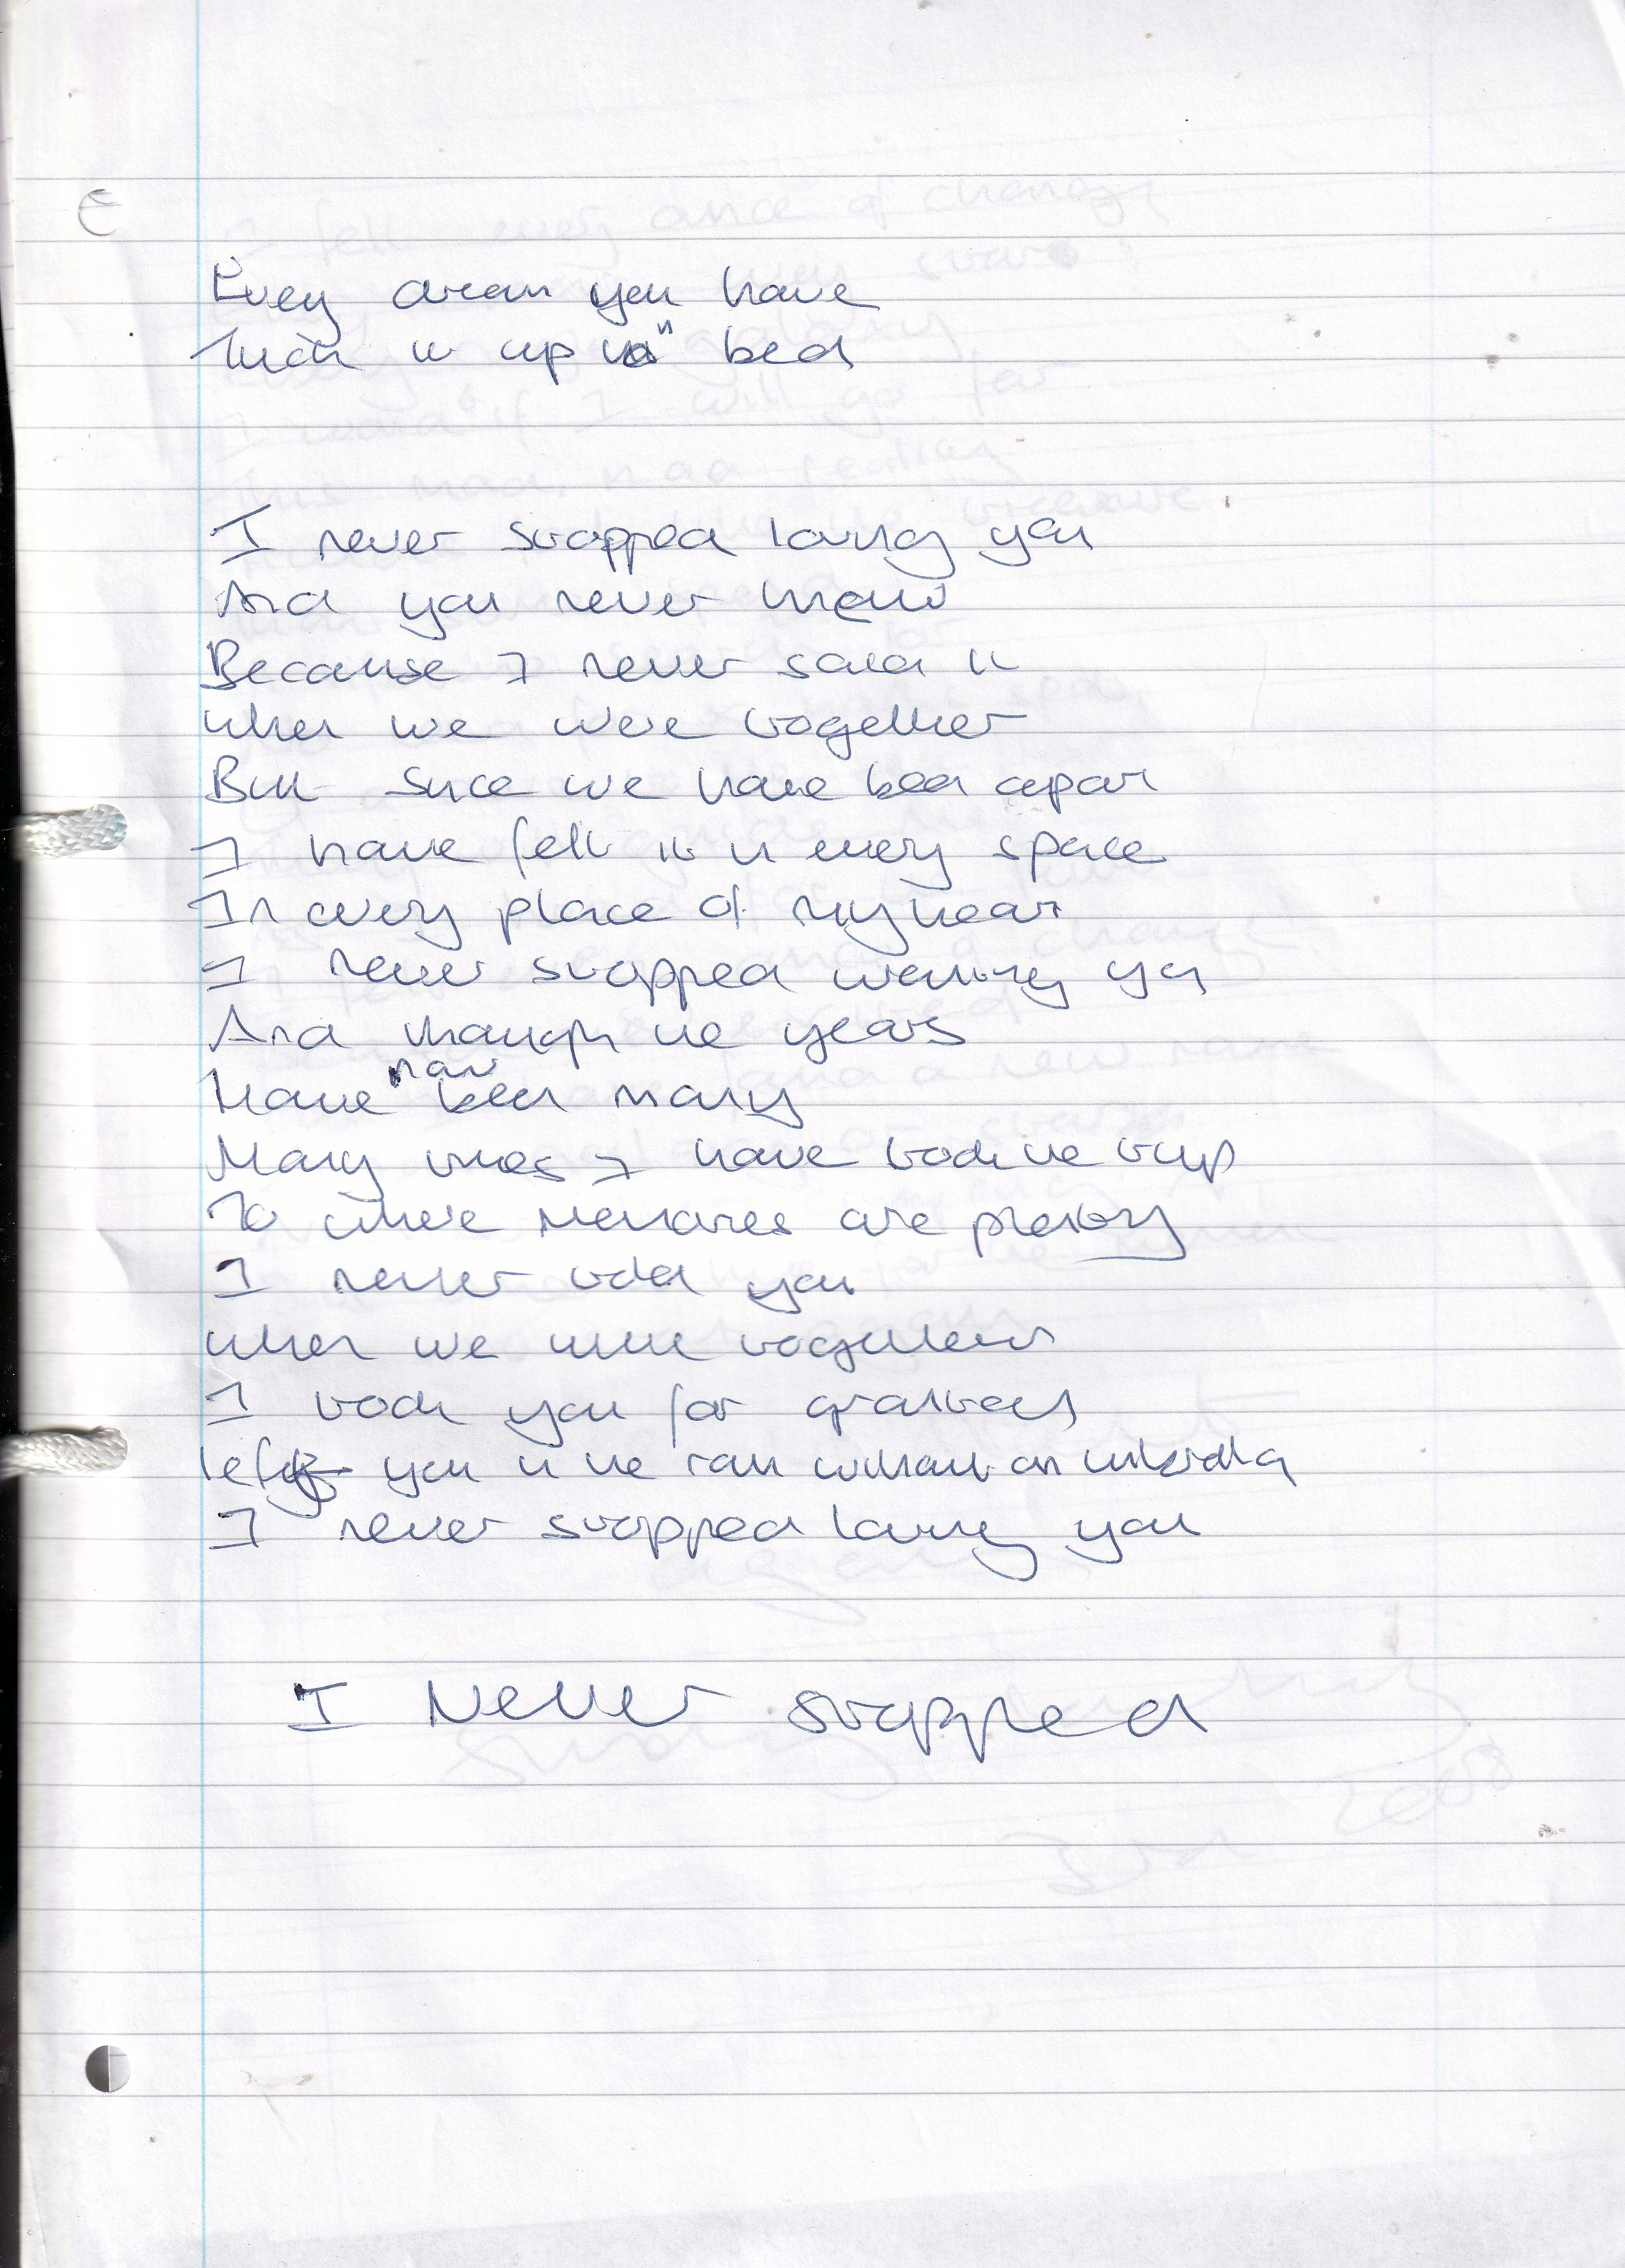 Every dream you have
Tuck it up in bed
I never stopped loving you
And you never knew
Because I never said it
when we were together
But since we have been apart
I have felt it in every space
In every place of my heart
I never stopped wanting you
And though the years
Have now been many
Many times I have took the trip
To where memories are plenty
I never told you
when we were together
I took you for granted
left you in the rain without an umbrella
I never stopped loving you
I Never stopped